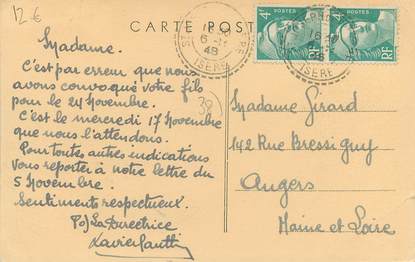 12 €
CARTE POST
POSTES 4F RF
POSTES 4F RF
ISÈRE
48
ISÈRE
Madame.
C'est par erreur que nous
avons convoqué votre fils
pour le 24 Novembre.
C'est le mercredi 17 Novembre
que nous l'attendons.
Pour toutes autres indications
Vous reporter à notre lettre du
5 Novembre.
Sentiments respectueux.
P) La Directrice
38
Madame Girard
142 Rue Bressigny
Angers
Maine et Loire